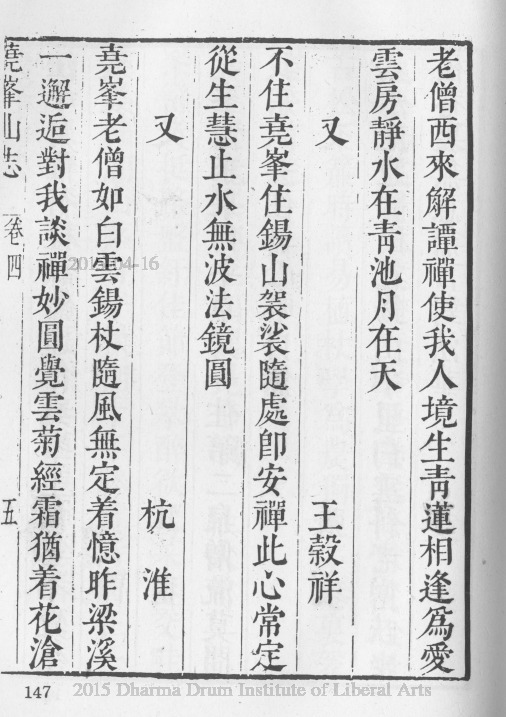 老僧西來解譚禪使我人境生靑蓮相逢爲愛
雲房靜水在靑池月在天
又 王穀祥
不住堯峯住錫山袈裟隨處卽安禪此心常定
從生慧止水無波法鏡圓
又 杭 淮
堯峯老僧如白雲錫杖隨風無定着憶昨梁溪
一邂逅對我談禪妙圓覺雲菊經霜猶着花滄
堯峯山志 卷四 五
2015-04-16
147
2015 Dharma Drum Institute of Liberal Arts